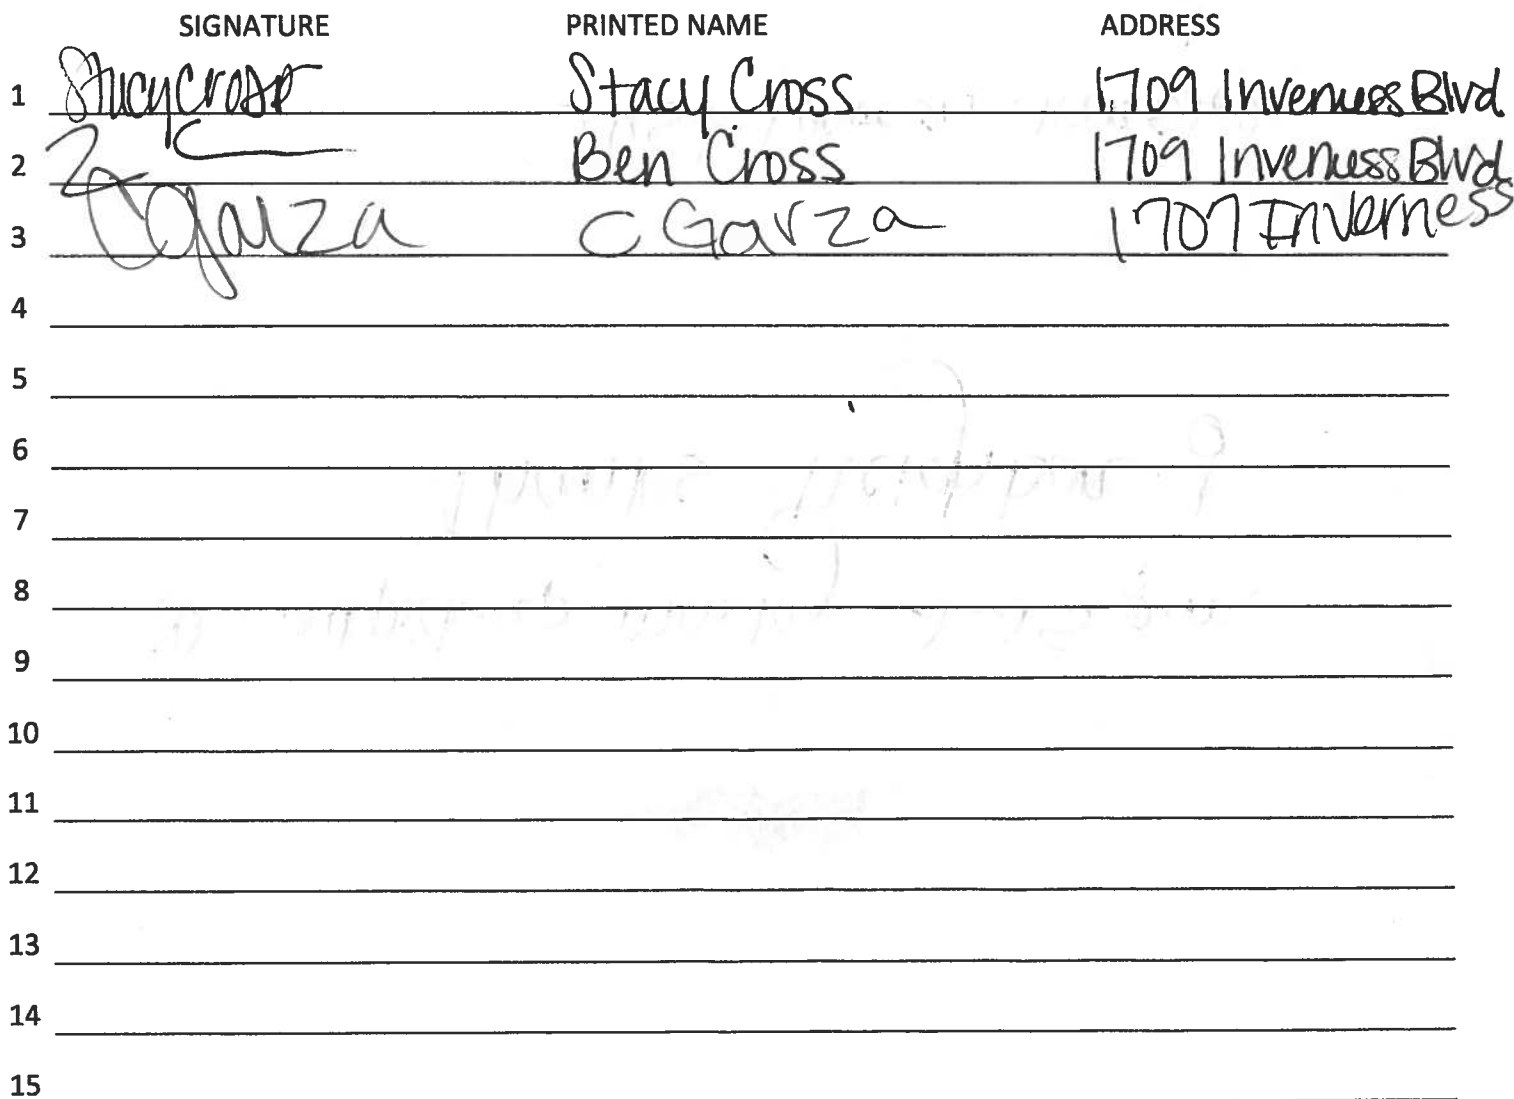 SIGNATURE PRINTED NAME ADDRESS
1 Stacy Cross Stacy Cross 1709 Inverness Blvd
2 Ben Cross 1709 Inverness Blvd
3 C Garza C Garza 1707 Inverness
4
5
6
7
8
9
10
11
12
13
14
15